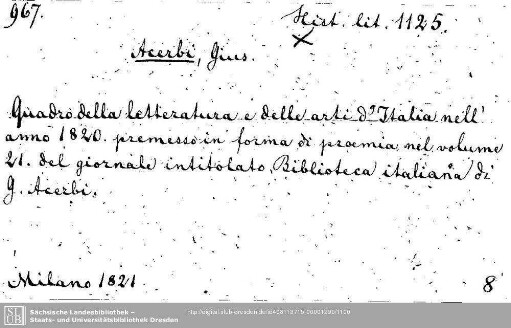 967.
Hist. lit. 1125.
Acerbi, Gius.
Quadro della letteratura e delle arti d'Italia nell'
anno 1820. premesso in forma di proemia nel volume
21. del giornale intitolato, Biblioteca italiana di
G. Acerbi.
Milano 1821.
8
SLUB
Sächsische Landesbibliothek –
Staats- und Universitätsbibliothek Dresden